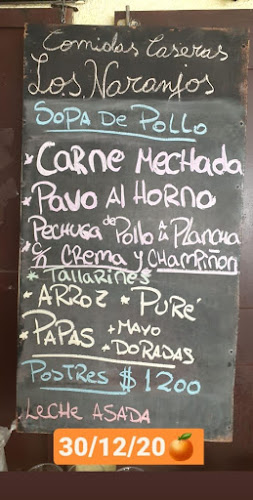 Comidas Caseras
Los Naranjos
SOPA De POLLO
* CARNE MecHADA
* PAVO Al HORNO
PecHUGA de Pollo A LA PlANCHA
* c/ CREMA y CHAMPIÑON
* TAllARINES
* ARROZ * PURé
* PAPAS + MAYO
* DORADAS
POSTRES $1200
LECHE ASADA
30/12/20🍊